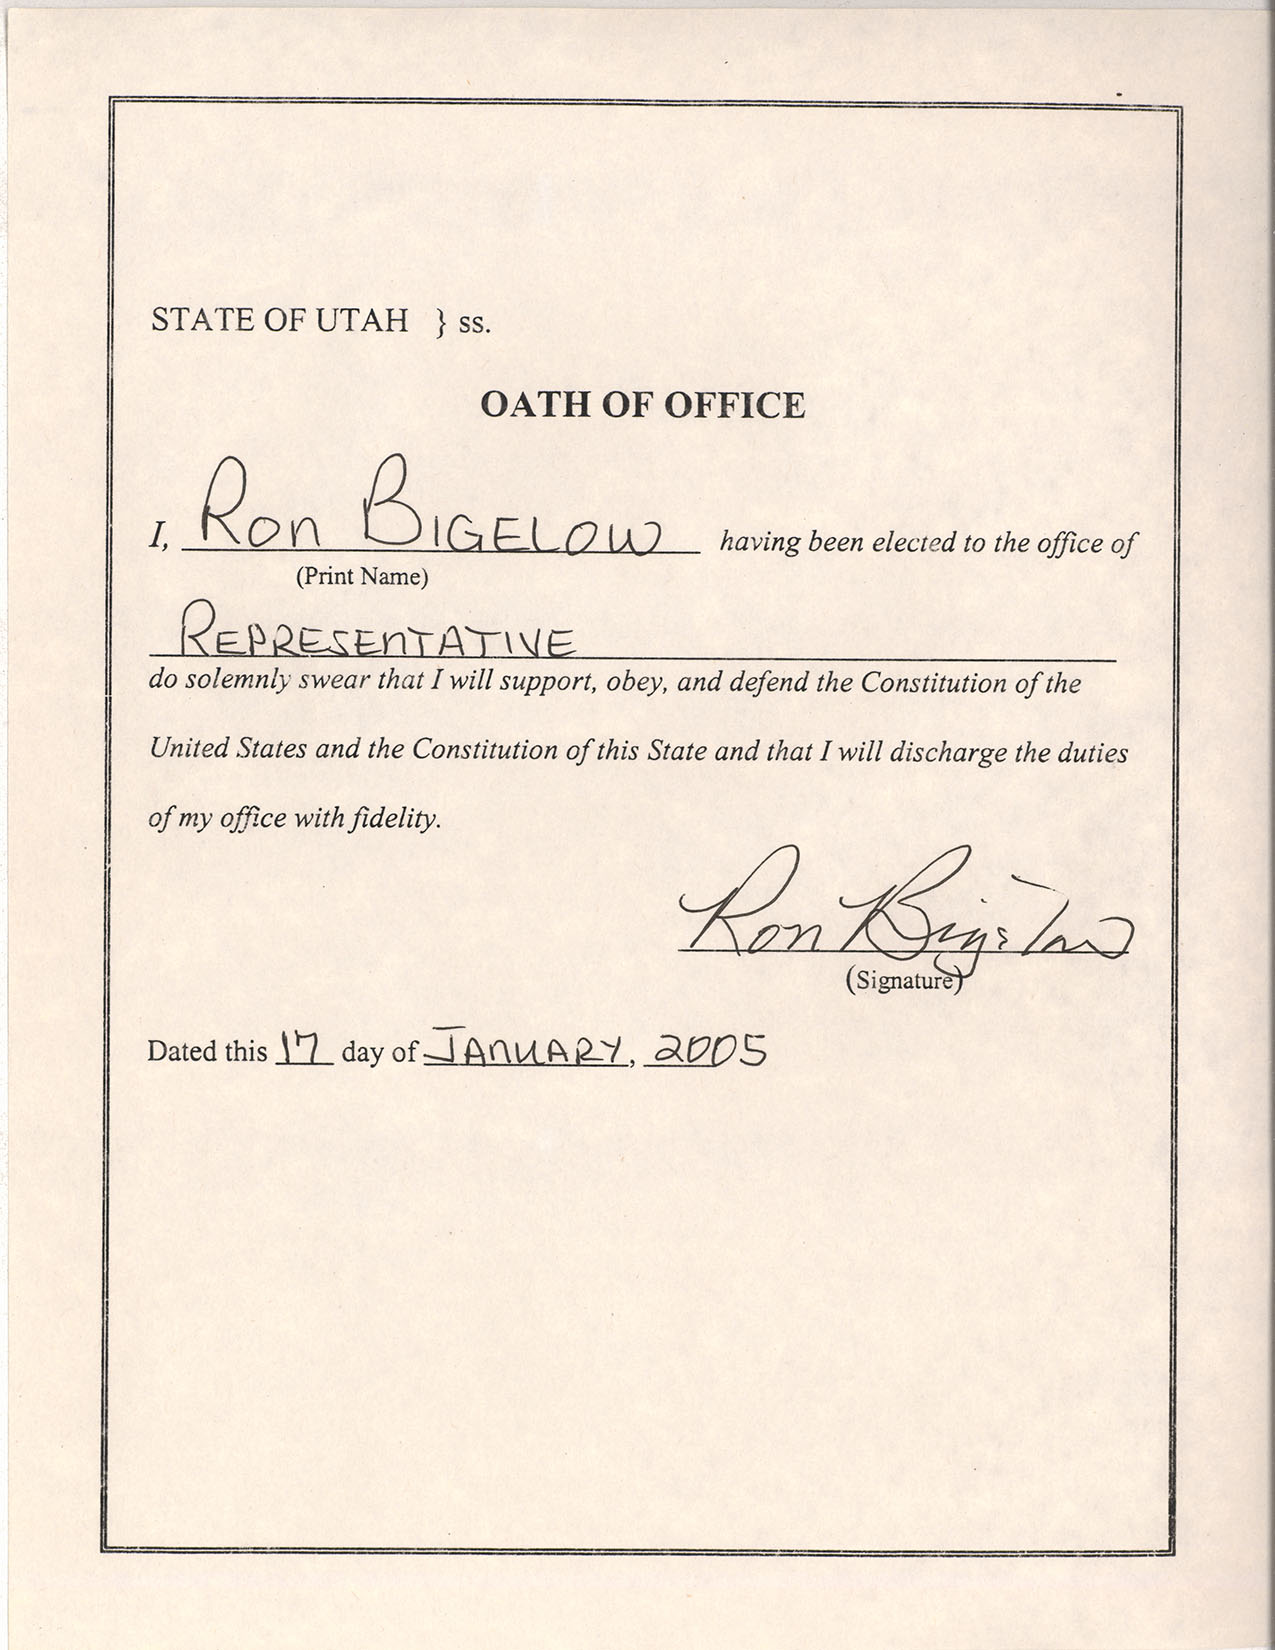 STATE OF UTAH } ss.
OATH OF OFFICE
I, Ron BIGELOW having been elected to the office of
(Print Name)
REPRESENTATIVE
do solemnly swear that I will support, obey, and defend the Constitution of the
United States and the Constitution of this State and that I will discharge the duties
of my office with fidelity.
Ron Bigelow
(Signature)
Dated this 17 day of JANUARY, 2005